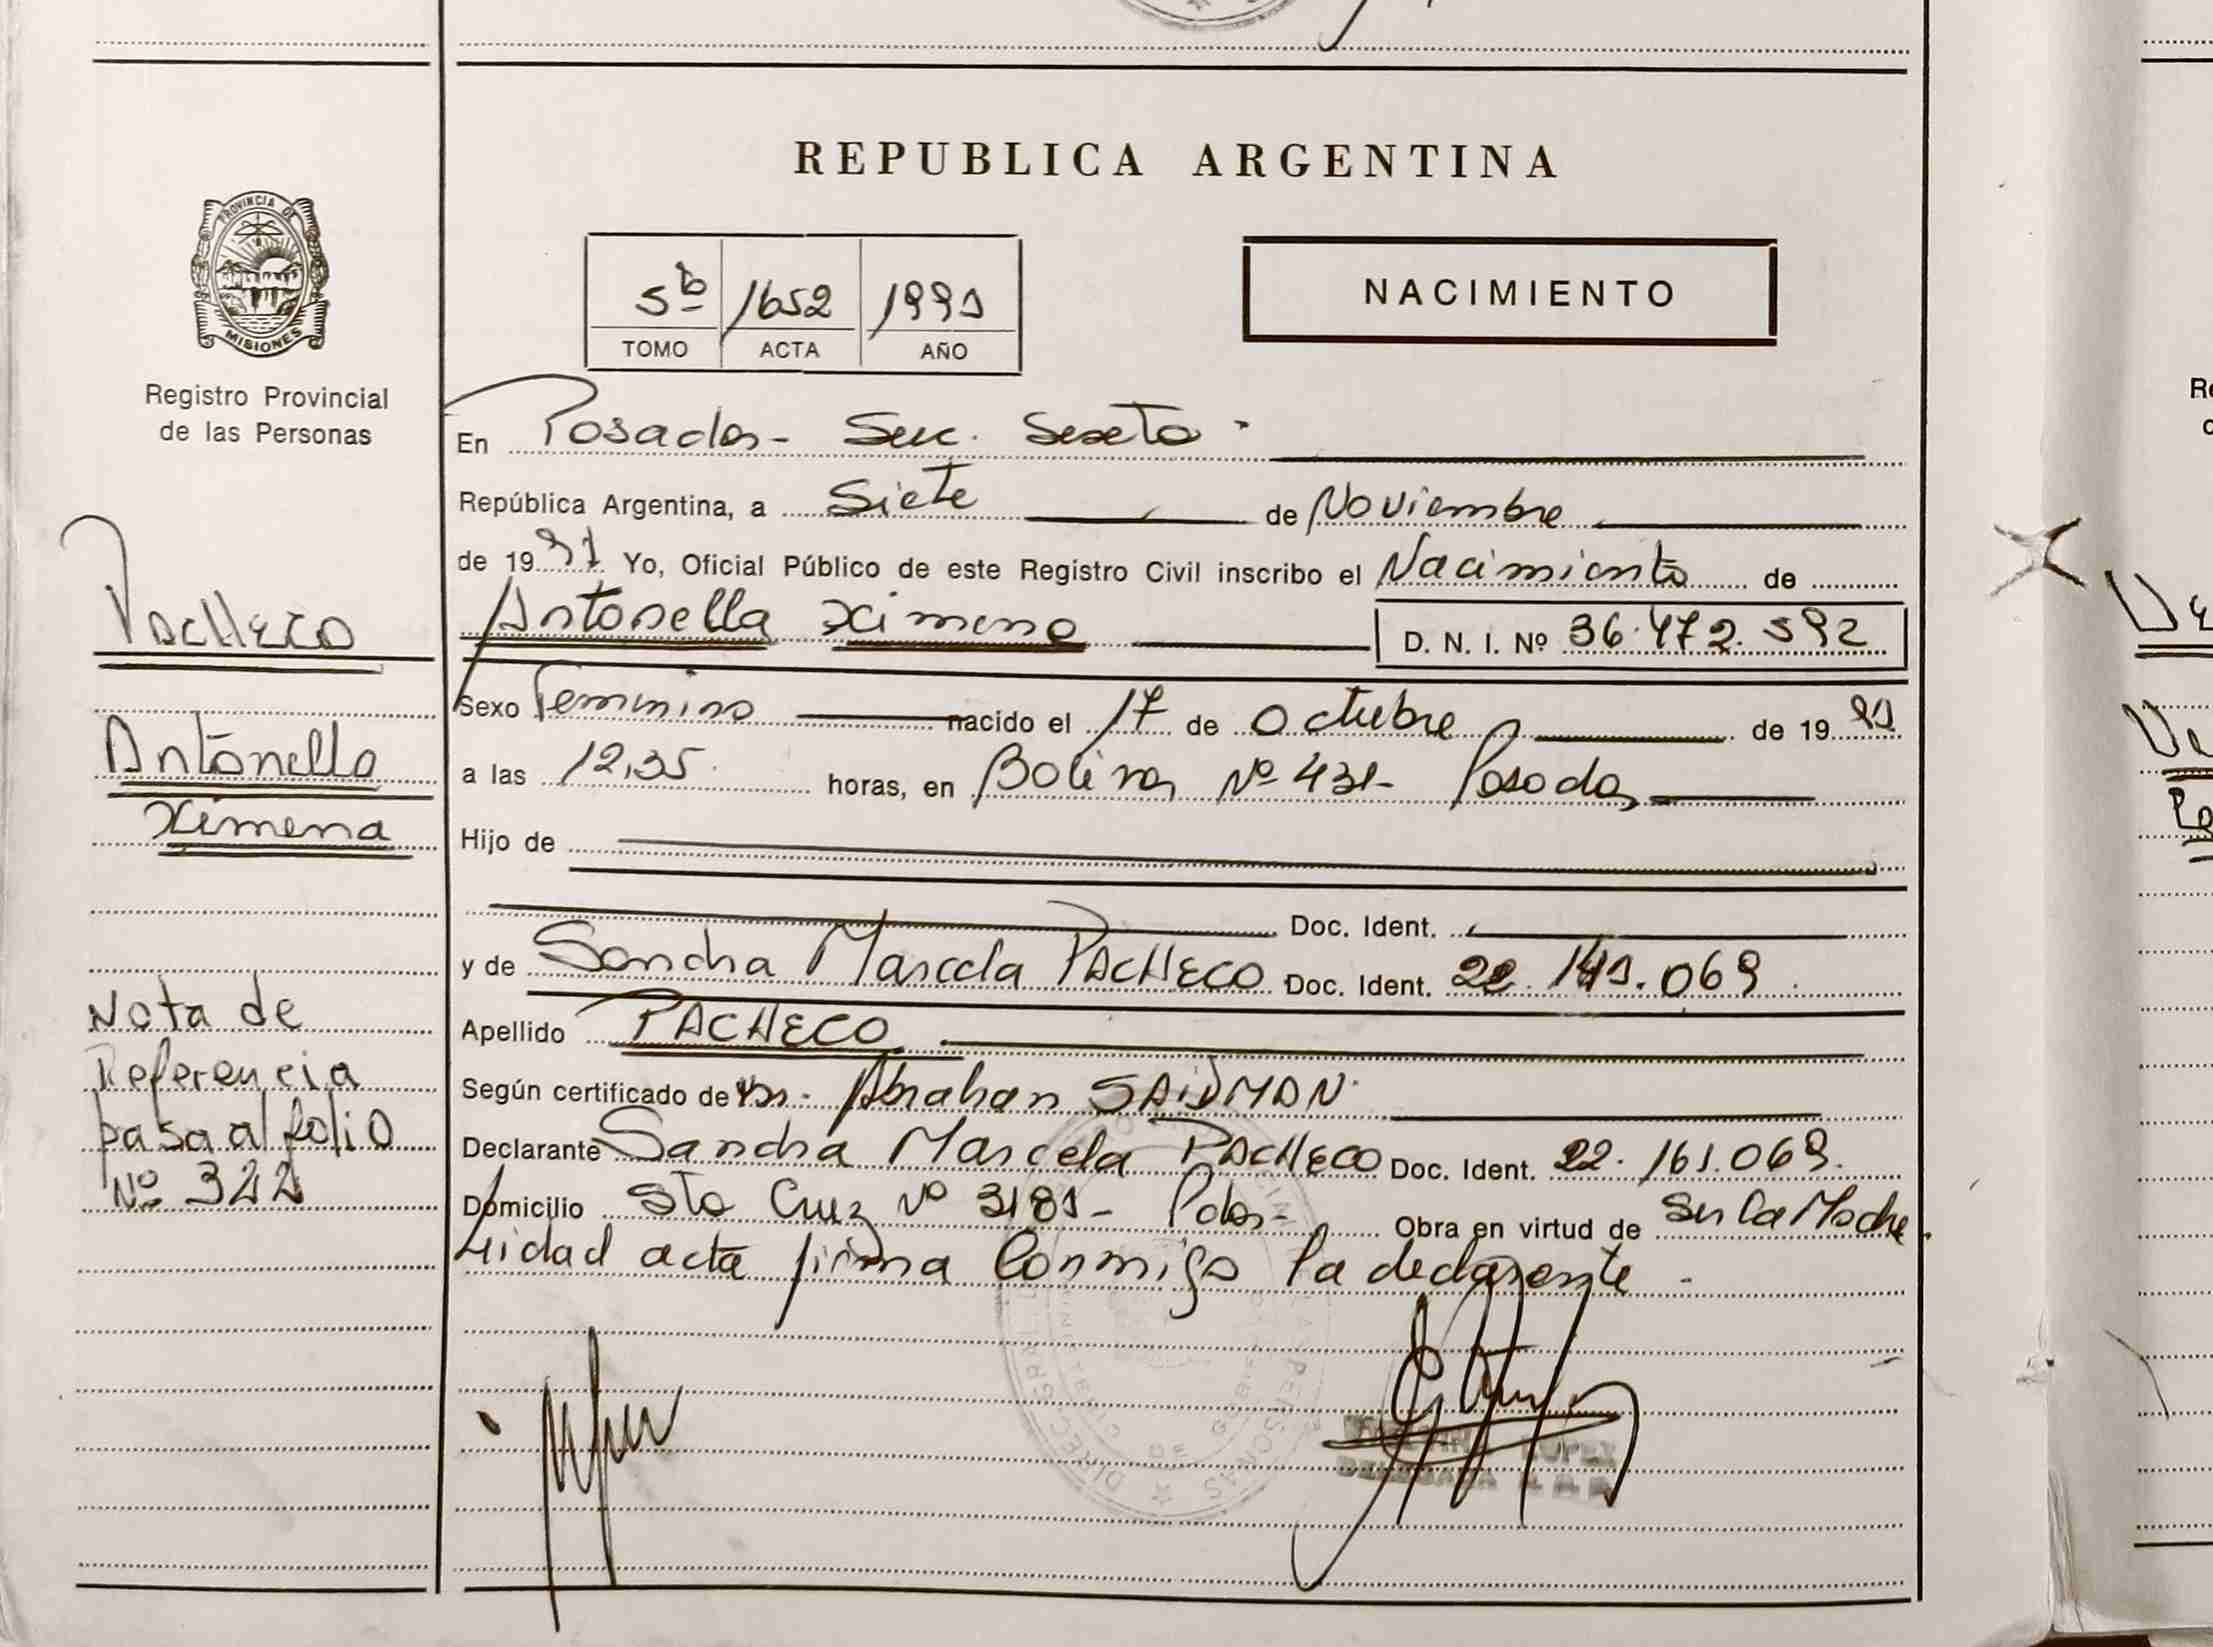 REPUBLICA ARGENTINA
PROVINCIA DE
MISIONES
Registro Provincial
de las Personas
5b 1652 1991
TOMO ACTA AÑO
NACIMIENTO
En Posadas - Secc. Sexta -
República Argentina, a Siete de Noviembre
de 1991 Yo, Oficial Público de este Registro Civil inscribo el Nacimiento de
Antonella Ximena D. N. I. Nº 36.472.592
Sexo Femenino nacido el 17 de Octubre de 1991
a las 12,35 horas, en Bolívar Nº 431- Posadas
Hijo de
Doc. Ident.
y de Sandra Marcela PACHECO Doc. Ident. 22. .069
Apellido PACHECO
Según certificado de Dr. Abrahan SAIDMAN
Declarante Sandra Marcela PACHECO Doc. Ident. 22.161.069.
Domicilio Sta Cruz Nº 3181- Pdas- Obra en virtud de
acta firma Conmigo la declarante.
PACHECO
Antonella
Ximena
Nota de
Referencia
pasa al folio
Nº 322
LOPEZ